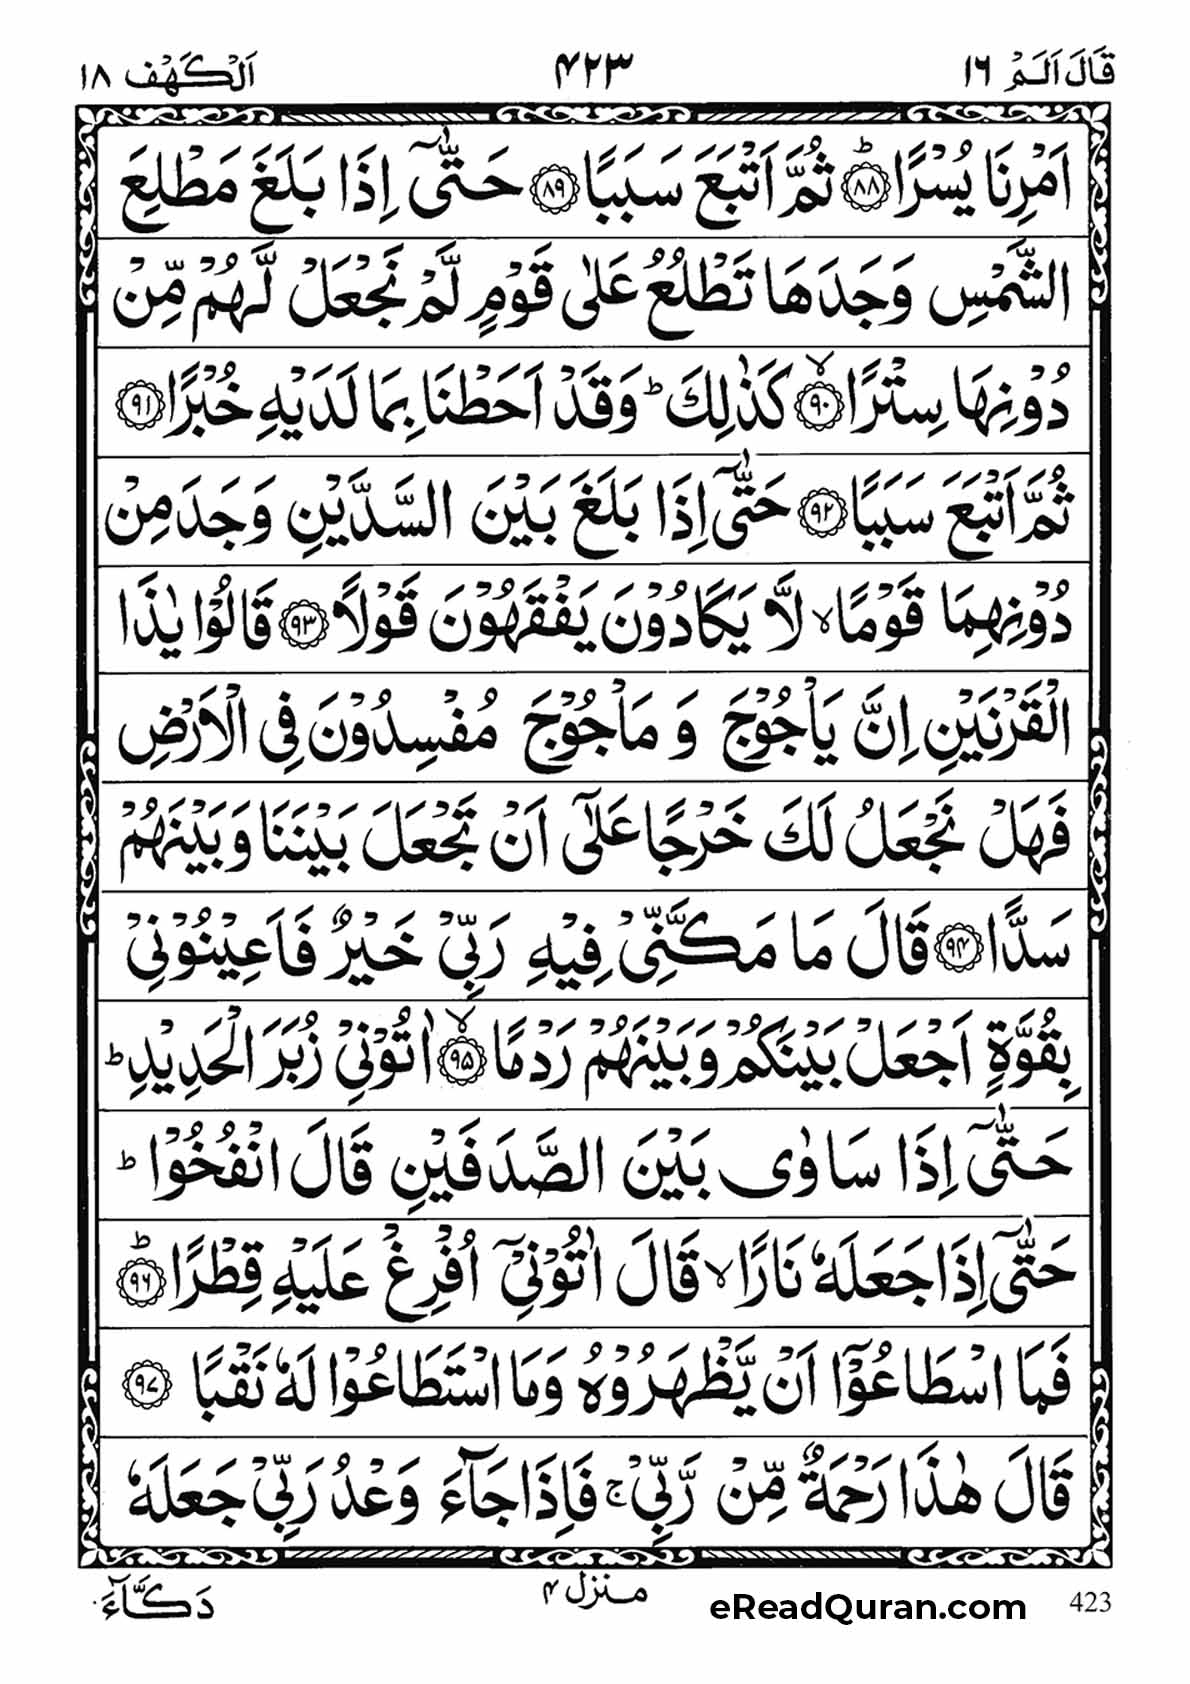 قَالَ اَلَمْ ١٦ ٤٢٣ اَلْكَهْف ١٨
اَمْرِنَا يُسْرًا ؕ﴿٨٨﴾ ثُمَّ اَتْبَعَ سَبَبًا ﴿٨٩﴾ حَتّٰۤى اِذَا بَلَغَ مَطْلِعَ
الشَّمْسِ وَجَدَهَا تَطْلُعُ عَلٰى قَوْمٍ لَّمْ نَجْعَلْ لَّهُمْ مِّنْ
دُوْنِهَا سِتْرًا ۙ﴿٩٠﴾ كَذٰلِكَ ؕ وَقَدْ اَحَطْنَا بِمَا لَدَيْهِ خُبْرًا ﴿٩١﴾
ثُمَّ اَتْبَعَ سَبَبًا ﴿٩٢﴾ حَتّٰۤى اِذَا بَلَغَ بَيْنَ السَّدَّيْنِ وَجَدَ مِنْ
دُوْنِهِمَا قَوْمًا ۙ لَّا يَكَادُوْنَ يَفْقَهُوْنَ قَوْلًا ﴿٩٣﴾ قَالُوْا يٰذَا
الْقَرْنَيْنِ اِنَّ يَاْجُوْجَ وَ مَاْجُوْجَ مُفْسِدُوْنَ فِى الْاَرْضِ
فَهَلْ نَجْعَلُ لَكَ خَرْجًا عَلٰۤى اَنْ تَجْعَلَ بَيْنَنَا وَبَيْنَهُمْ
سَدًّا ﴿٩٤﴾ قَالَ مَا مَكَّنِّىْ فِيْهِ رَبِّىْ خَيْرٌ فَاَعِيْنُوْنِىْ
بِقُوَّةٍ اَجْعَلْ بَيْنَكُمْ وَبَيْنَهُمْ رَدْمًا ۙ﴿٩٥﴾ اٰتُوْنِىْ زُبَرَ الْحَدِيْدِ ؕ
حَتّٰۤى اِذَا سَاوٰى بَيْنَ الصَّدَفَيْنِ قَالَ انْفُخُوْا ؕ
حَتّٰۤى اِذَا جَعَلَهٗ نَارًا ۙ قَالَ اٰتُوْنِىْۤ اُفْرِغْ عَلَيْهِ قِطْرًا ؕ﴿٩٦﴾
فَمَا اسْطَاعُوْۤا اَنْ يَّظْهَرُوْهُ وَمَا اسْتَطَاعُوْا لَهٗ نَقْبًا ﴿٩٧﴾
قَالَ هٰذَا رَحْمَةٌ مِّنْ رَّبِّىْ ۚ فَاِذَا جَآءَ وَعْدُ رَبِّىْ جَعَلَهٗ
دَكَّآءَ منزل ٤ eReadQuran.com 423